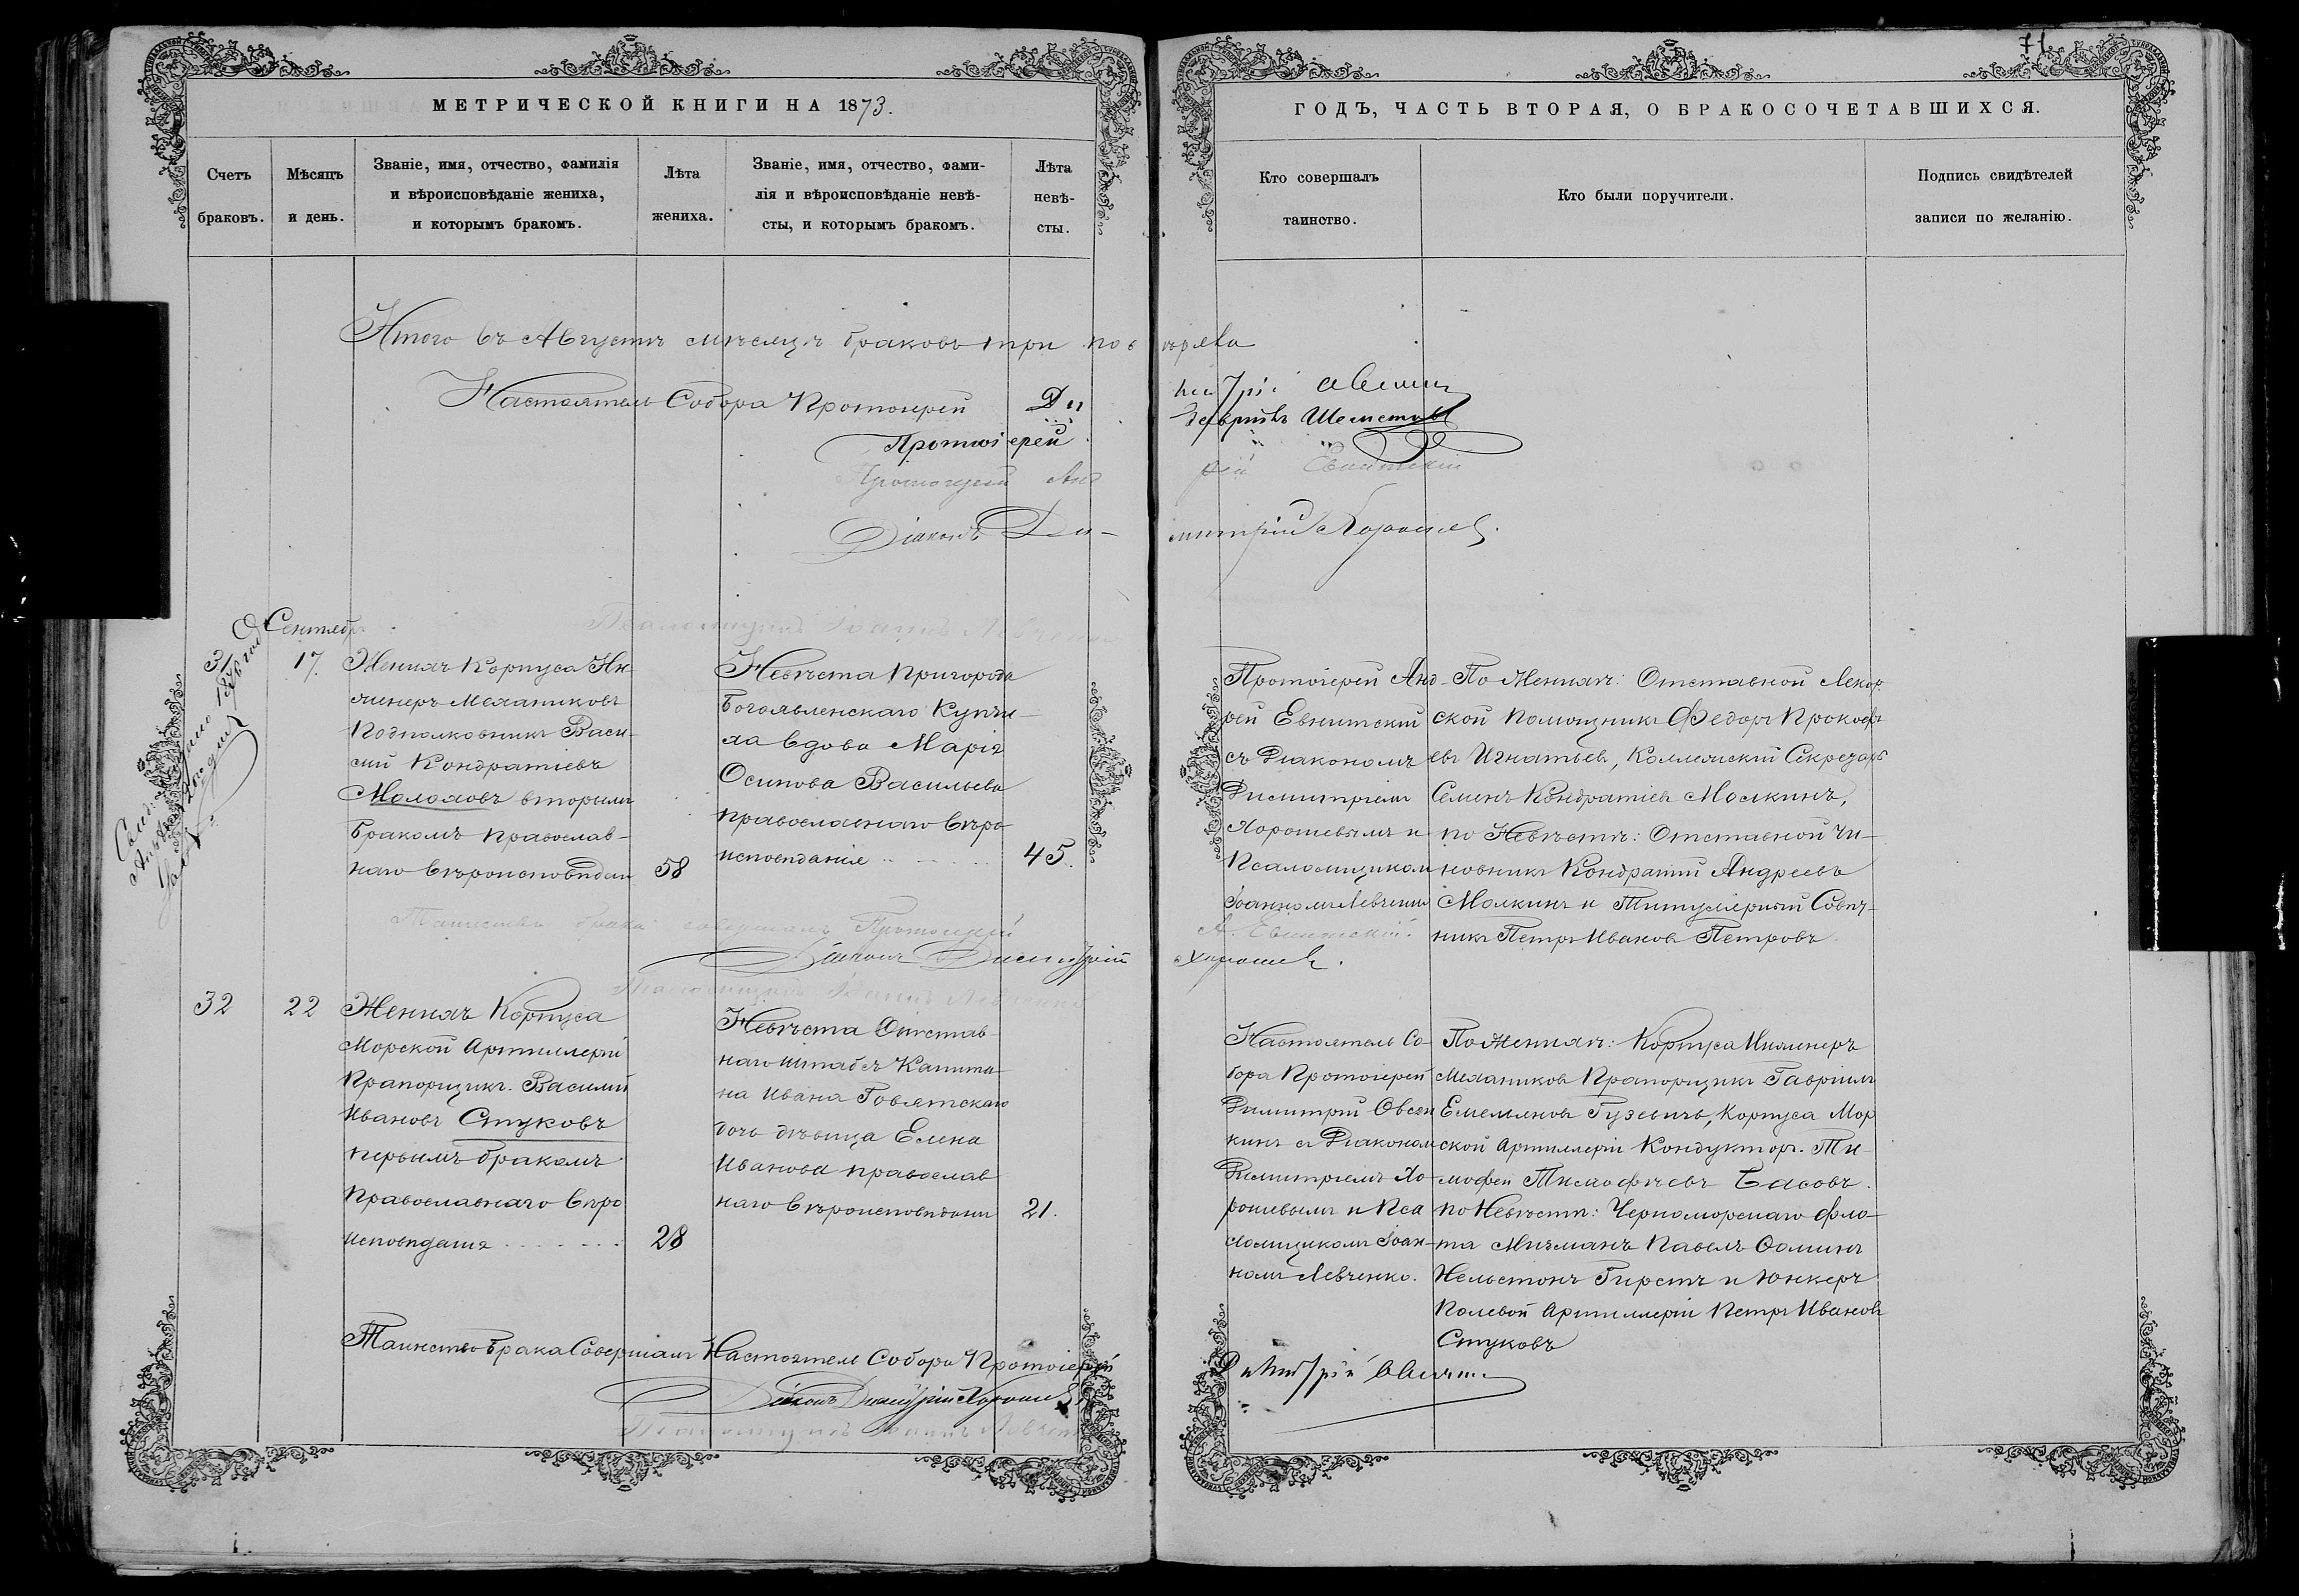 71
МЕТРИЧЕСКОЙ КНИГИ НА 1873.
ГОДЪ, ЧАСТЬ ВТОРАЯ, О БРАКОСОЧЕТАВШИХСЯ.
Счетъ
браковъ.
Мѣсяцъ
и день.
Званіе, имя, отчество, фамилія
и вѣроисповѣданіе жениха,
и которымъ бракомъ.
Лѣта
жениха.
Званіе, имя, отчество, фами-
лія и вѣроисповѣданіе невѣ-
сты, и которымъ бракомъ.
Лѣта
невѣ-
сты.
Кто совершалъ
таинство.
Кто были поручители.
Подпись свидѣтелей
записи по желанію.
Итого въ Августѣ мѣсяцѣ браковъ три
Настоятель Собора Протоіерей
Протоіерей
Протоіерей Евнитскій
Діаконъ Димитрій Хорошев
Псаломщикъ Іоаннъ Левченко
Сентябр
31
17.
Женихъ Корпуса Ин-
женеръ Механиковъ
Подполковникъ Васи-
лий Кондратіевъ
Молоховъ вторымъ
бракомъ православ-
наго вѣроисповѣдан
58
Невѣста Пригорода
Богоявленскаго Купчи-
ха вдова Марія
Осипова Васильева
православнаго вѣро-
исповѣданіе
45.
Протоіерей Анд-
рей Евнитскій
съ Діакономъ
Димитріемъ
Хорошевымъ и
Псаломщиком
Іоанномъ Левченко
По Женихѣ: Отставной Лекор.
ской помощникъ Федоръ Прокофь
евъ Игнатьев, Коллежскій Секретарь
Семенъ Кондратіев Молкинъ,
по Невѣстѣ: Отставной Чи-
новникъ Кондратій Андреевъ
Молкинъ и Титулярный Совѣт-
никъ Петръ Иванов Петровъ
Таинство брака совершалъ Протоіерей
А. Евнитскій.
Діаконъ Димитрій Хорошев.
Псаломщикъ Іоаннъ Левченко
32
22
Женихъ Корпуса
Морской Артиллеріи
Прапорщикъ Василий
Ивановъ Стуковъ
первымъ бракомъ
Православнаго вѣро
исповѣданія
28
Невѣста Отстав-
наго штабсъ Капита-
на Ивана Говятскаго
дочь дѣвица Елена
Иванова православ
наго вѣроисповѣдани
21.
Настоятель Со-
бора Протоіерей
Димитрій Овсян
кинъ съ Діаконом
Димитріемъ Хо-
рошевымъ и Пса
ломщикомъ Іоан-
номъ Левченко.
По Женихѣ: Корпуса Инженеръ
Механиковъ Прапорщикъ Гавріилъ
Емельянов Гузевичъ, Корпуса Мор
ской Артиллеріи Кондукторъ Ти-
мофей Тимофѣевъ Басовъ.
по Невѣстѣ: Черноморскаго фло-
та Мичманъ Павелъ Фоминъ
Нельстонъ Гирстъ и Юнкеръ
Полевой Артиллеріи Петръ Иванов
Стуковъ
Таинство Брака Совершалъ Настоятель Собора Протоіерей
Діаконъ Димитрій Хорошев
Псаломщикъ Іоаннъ Левченко